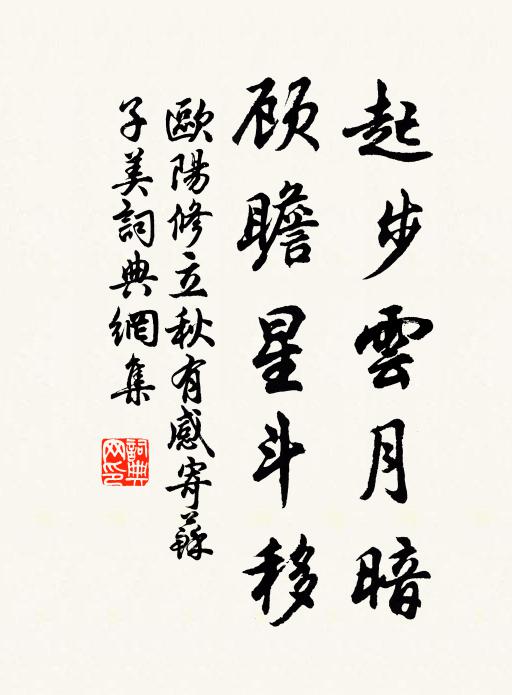 起步雲月暗
顾瞻星斗移
歐陽修立秋有感寄蘇
子美詞典網集
詞典网印